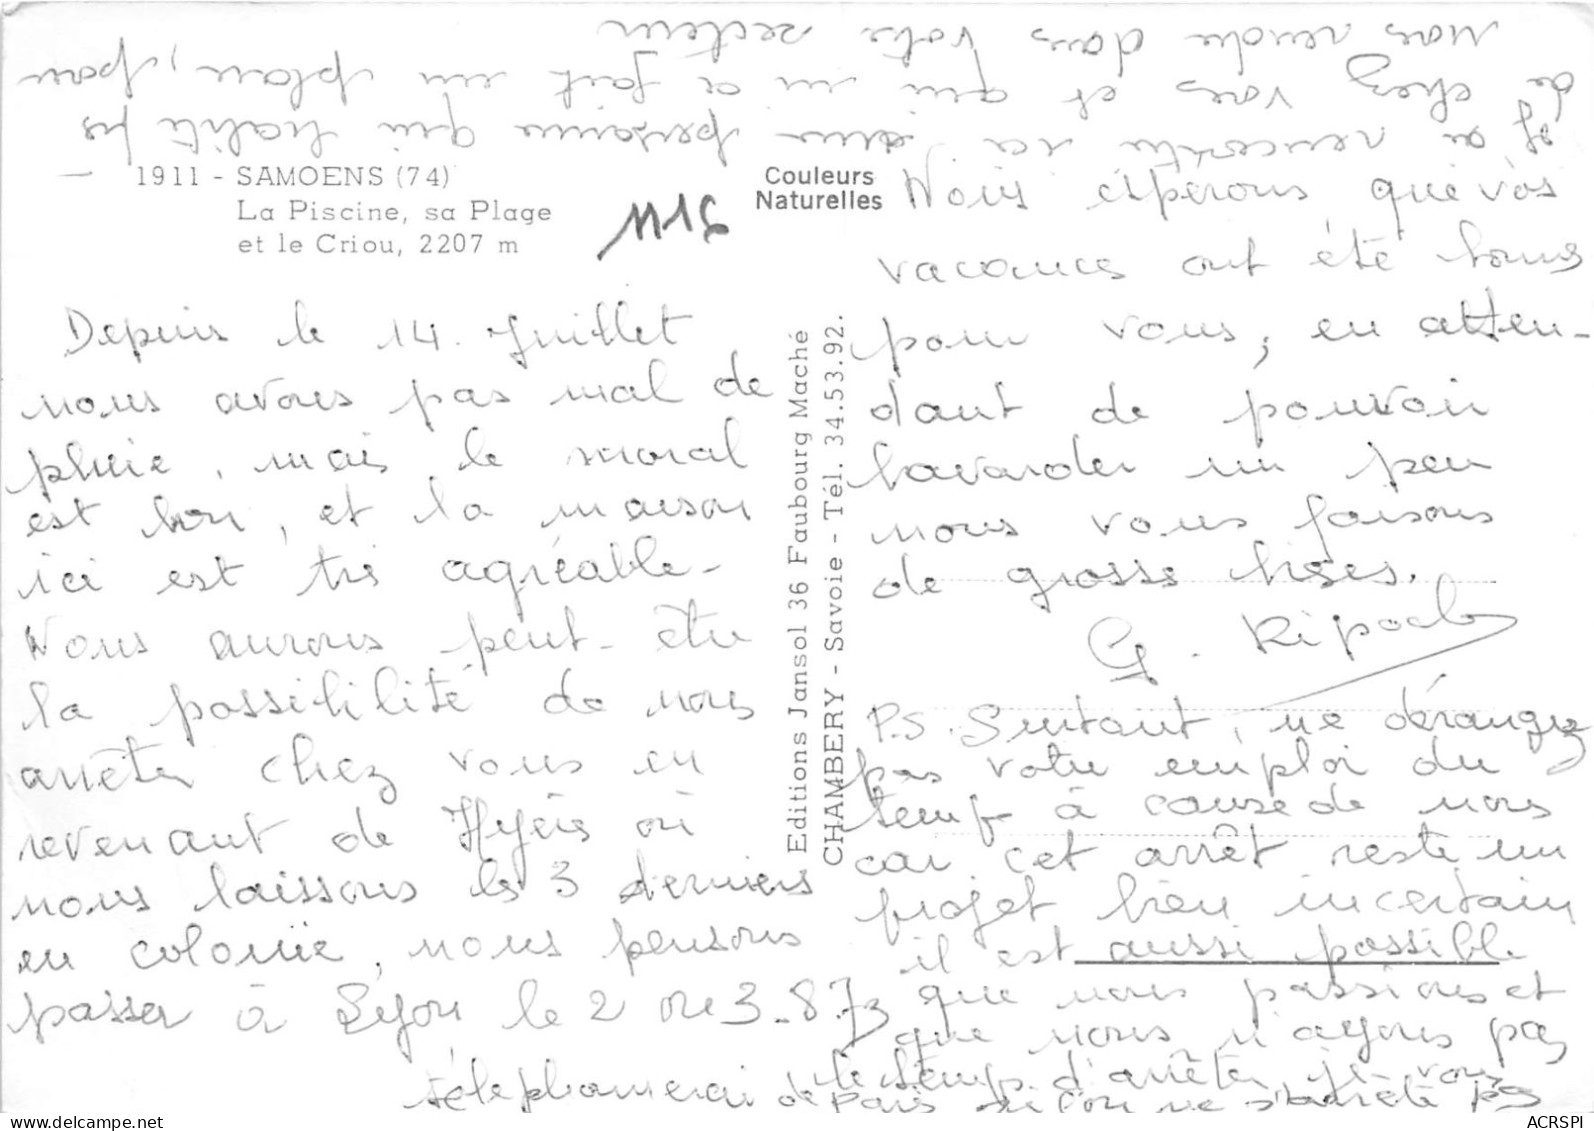 1911 - SAMOENS (74)
La Piscine, sa Plage
et le Criou, 2207 m
Couleurs
Naturelles
Editions Jansol 36 Faubourg Maché
CHAMBERY - Savoie - Tél. 34.53.92.
Depuis le 14 Juillet
nous avons pas mal de
pluie, mais le moral
est bon, et la maison
ici est très agréable -
Nous aurons peut-être
la possibilité de nous
arrêter chez vous en
revenant de Hyères où
nous laissons les 3 derniers
en colonie, nous pensons
passer à Lyon le 2 ou 3-8.73
Nous espérons que vos
vacances ont été bonnes
pour vous, en atten-
dant de pouvoir
bavarder un peu
nous vous faisons
de grosses bises.
G. Ripoche
P.S. Surtout, ne dérangez
pas votre emploi du
temps à cause de nous
car cet arrêt reste un
projet bien incertain
il est aussi possible
que nous passions et
que nous n'ayons pas
le temps d'arrêter, je vous
téléphonerai de Paris si l'on ne s'arrête pas
J'ai rencontré ici une personne qui habite près
de chez vous et qui m'a fait un plan, pour
nous rendre dans votre secteur
ACRSPI